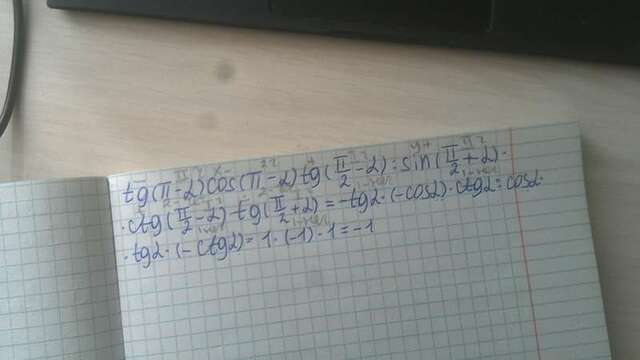 tg(π-α)cos(π-α)tg(π/2-α):sin(π/2+α)·
·ctg(π/2-α)·tg(π/2+α)=-tgα·(-cosα)·ctgα:cosα·
·tgα·(-ctgα)=1·(-1)·1=-1